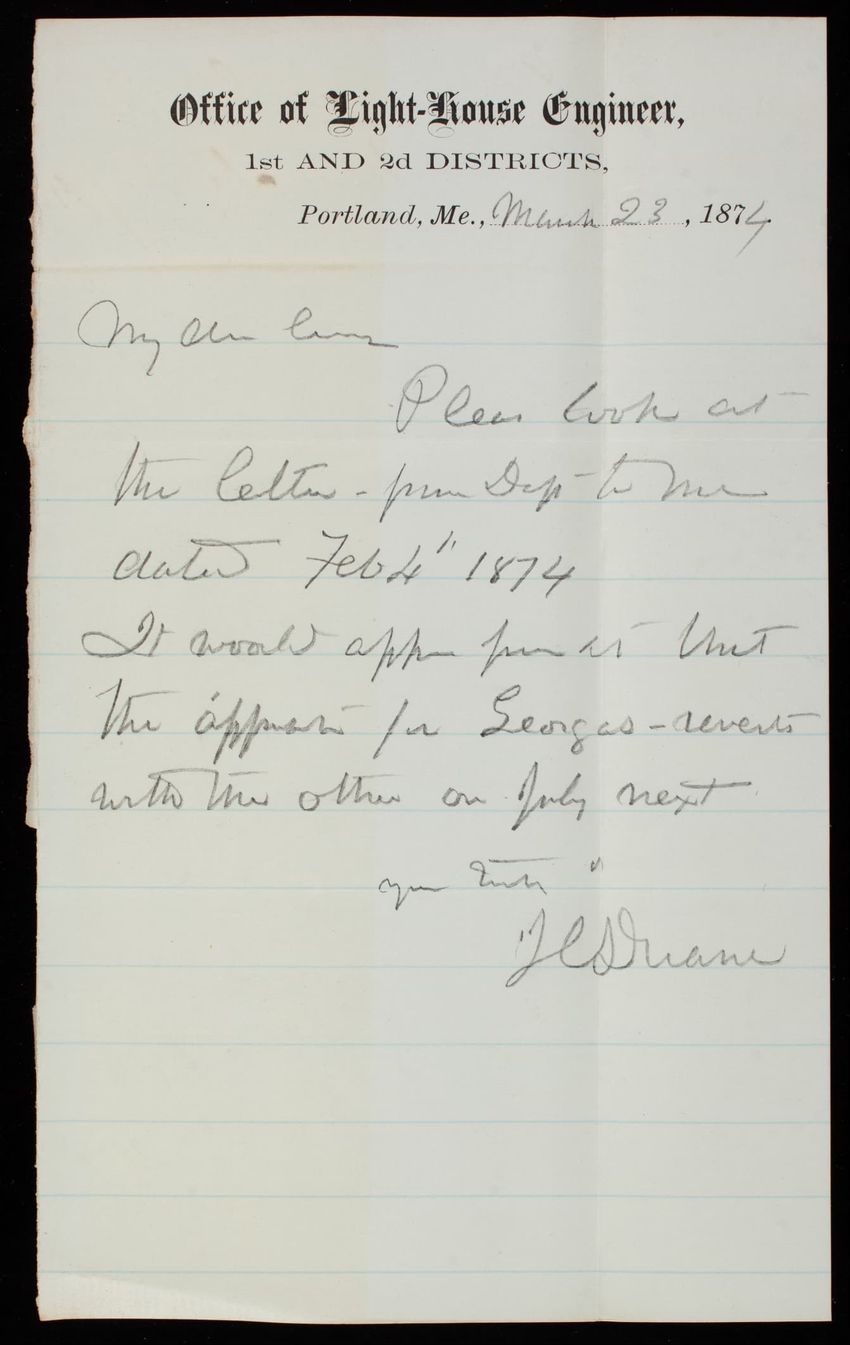 Office of Light-House Engineer,
1st AND 2d DISTRICTS,
Portland, Me., March 23, 1874
My dear
Pleas look at
the letter - from Dept to me
dated Feb 4" 1874
It would appear from it that
the for Georges - reverts
with the other on July next
your truly
J C Duane